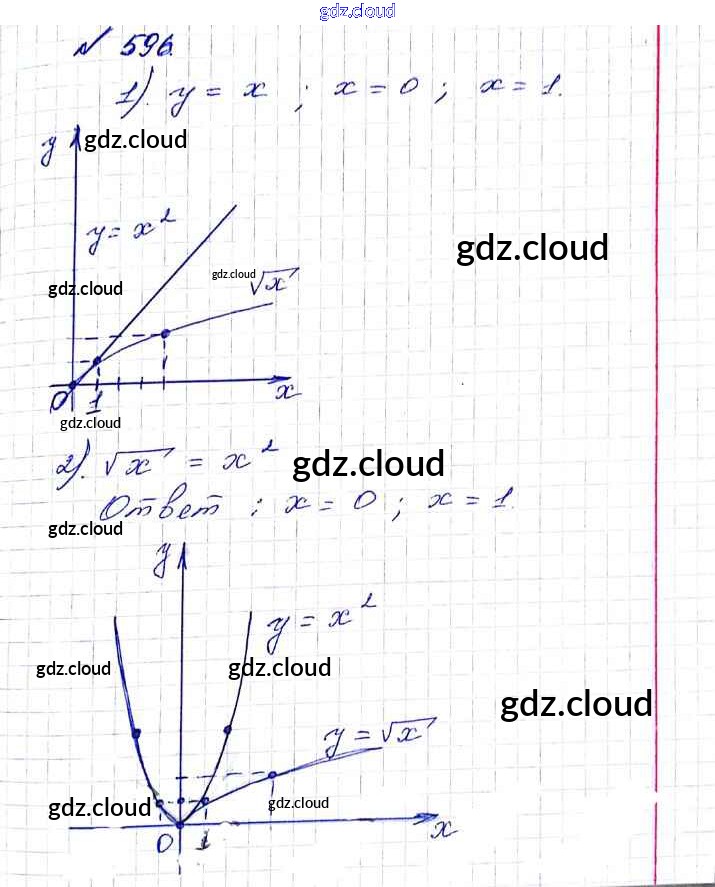 gdz.cloud
№ 596.
1). y = x ; x = 0 ; x = 1.
y gdz.cloud
y = x²
gdz.cloud
gdz.cloud
gdz.cloud √x
0 1 x
gdz.cloud
2). √x = x² gdz.cloud
Ответ : x = 0 ; x = 1.
gdz.cloud
y
y = x²
gdz.cloud gdz.cloud
gdz.cloud
y = √x
gdz.cloud gdz.cloud
0 1 x